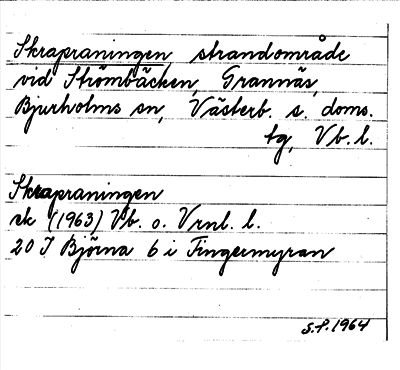 Skrapraningen, strandområde
vid Strömbäcken, Grannäs,
Bjurholms sn, Västerb. s. doms.
tg, Vb. l.
Skrapraningen
ek (1963) Vb. o. Vrnl. l.
20 I Björna 6 i Fingermyran
S.P. 1964